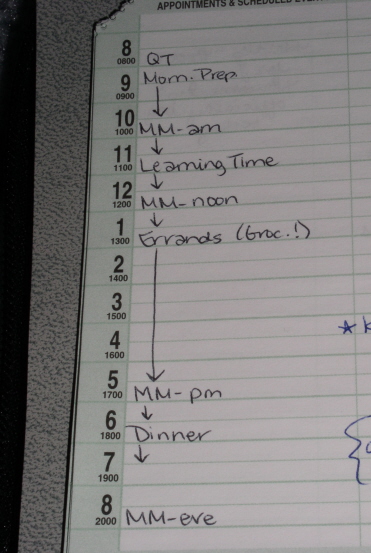 APPOINTMENTS & SCHEDULED
8 0800 QT
9 0900 Morn. Prep
10 1000 MM-am
11 1100 Learning Time
12 1200 MM-noon
1 1300 Errands (Groc.!)
2 1400
3 1500
4 1600
5 1700 MM-pm
6 1800 Dinner
7 1900
8 2000 MM-eve